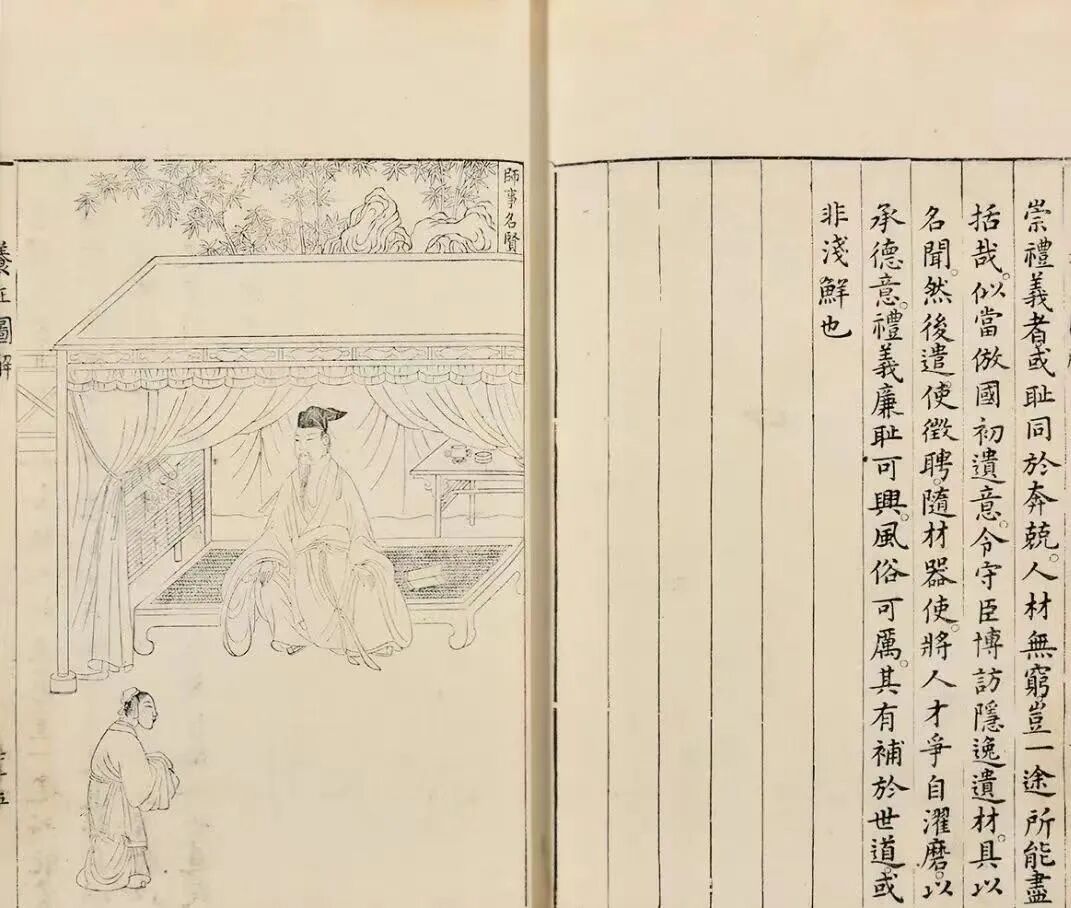 崇禮義者或耻同於奔兢。人材無窮豈一途所能盡
括哉。似當倣國初遺意。令守臣博訪隱逸遺材。具以
名聞。然後遣使徵聘。隨材器使。將人才爭自濯磨。以
承德意。禮義廉耻可興。風俗可厲。其有補於世道。或
非淺鮮也
師事名賢
養正圖解